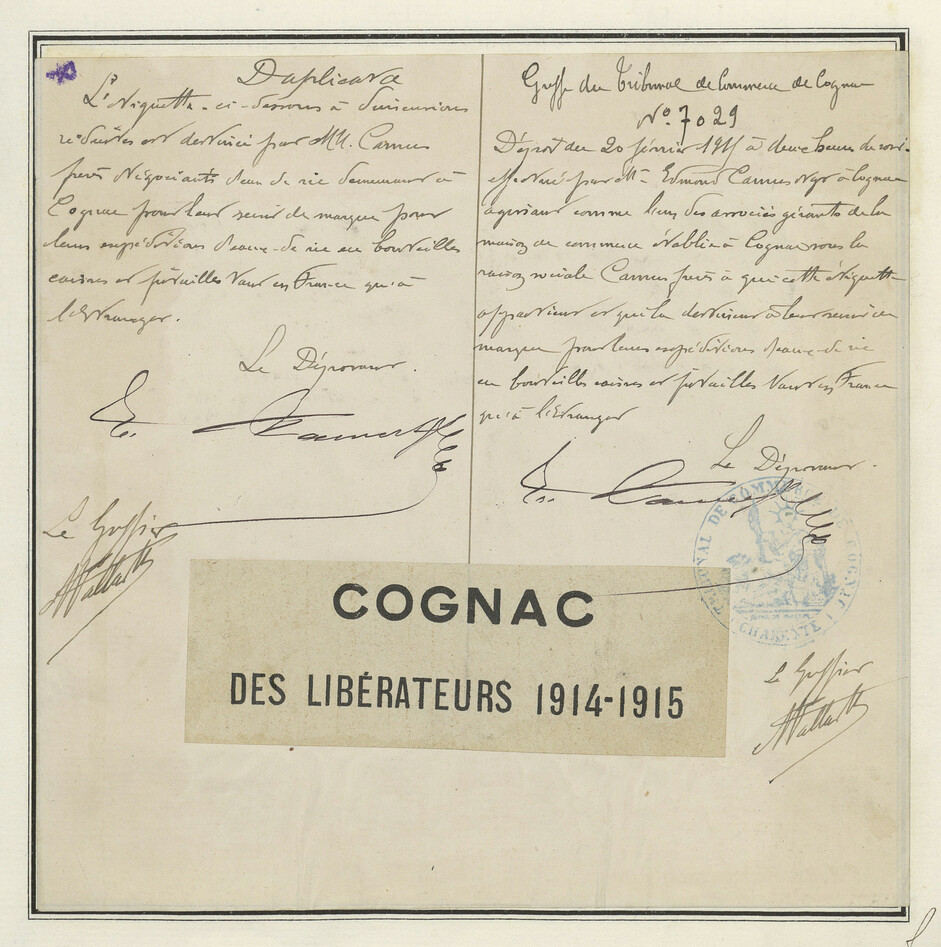 Duplicata
L'Etiquette ci-dessous à dimensions
réduites est destinée par MM. Camus
frères Négociants d'eau de vie demeurant à
Cognac pour leur servir de marque pour
leurs expéditions d'eaux-de-vie en bouteilles
caisses et futailles tant en France qu'à
l'Etranger.
Le Déposant.
Le Greffier
Greffe du Tribunal de Commerce de Cognac
N° 7029
Dépôt du 20 février 1915 à deux heures du soir
effectué par M. Edmond Camus Ngt à Cognac
agissant comme l'un des associés gérants de la
maison de commerce établie à Cognac sous la
raison sociale Camus frères à qui cette étiquette
appartient et qui la destinent à leur servir de
marque pour leurs expéditions d'eaux-de-vie
en bouteilles caisses et futailles tant en France
qu'à l'Etranger
Le Déposant.
TRIBUNAL DE COMMERCE DE COGNAC
(CHARENTE)
Le Greffier
COGNAC
DES LIBÉRATEURS 1914-1915